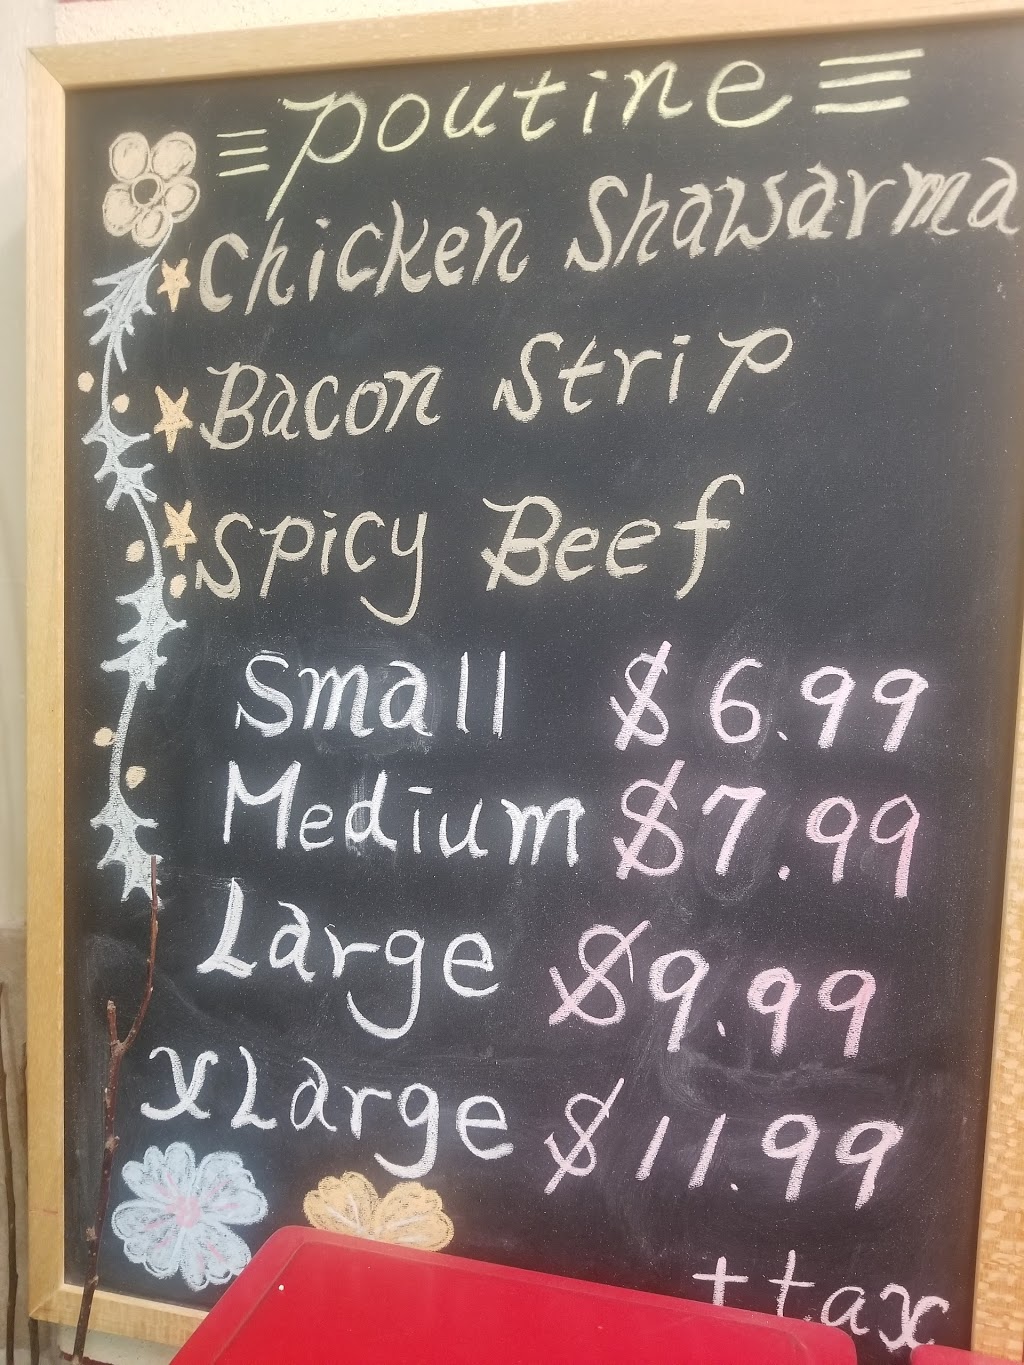 Poutine
Chicken Shawarma
Bacon Strip
Spicy Beef
Small $6.99
Medium $7.99
Large $9.99
XLarge $11.99
+tax